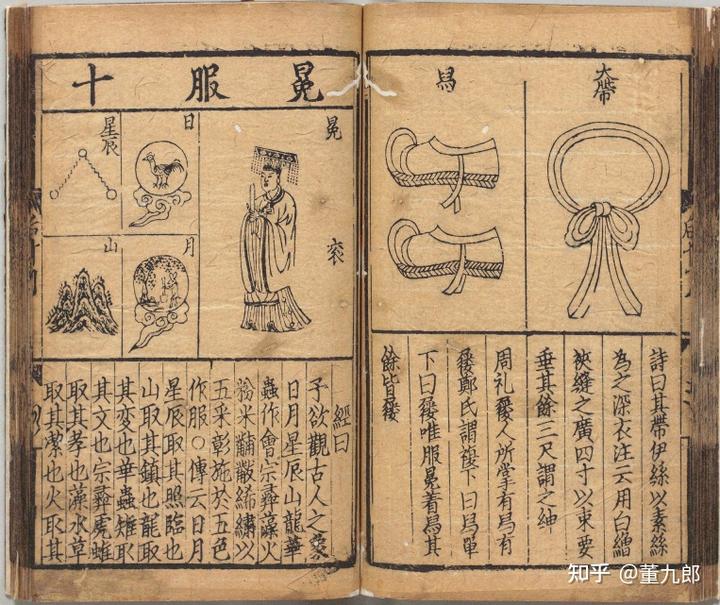 大帶
舃
詩曰其帶伊絲以素絲
為之深衣注云用白繒
狹縫之廣四寸以束要
垂其餘三尺謂之紳
周礼屨人所掌有舃有
屨鄭氏謂複下曰舃單
下曰屨唯服冕着舃其
餘皆屨
冕服十
冕衮
日
月
星辰
山
經曰
予欲觀古人之象
日月星辰山龍華
蟲作會宗彝藻火
粉米黼黻絺繡以
五采彰施於五色
作服○傳云日月
星辰取其照臨也
山取其鎮也龍取
其変也華蟲雉取
其文也宗彝虎蜼
取其孝也藻水草
取其潔也火取其
知乎 @董九郎